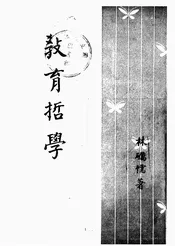 教育哲學
林礪儒著